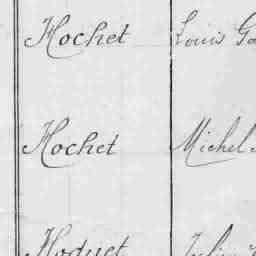 Hochet Louis
Hochet Michel
Hoduet Julien